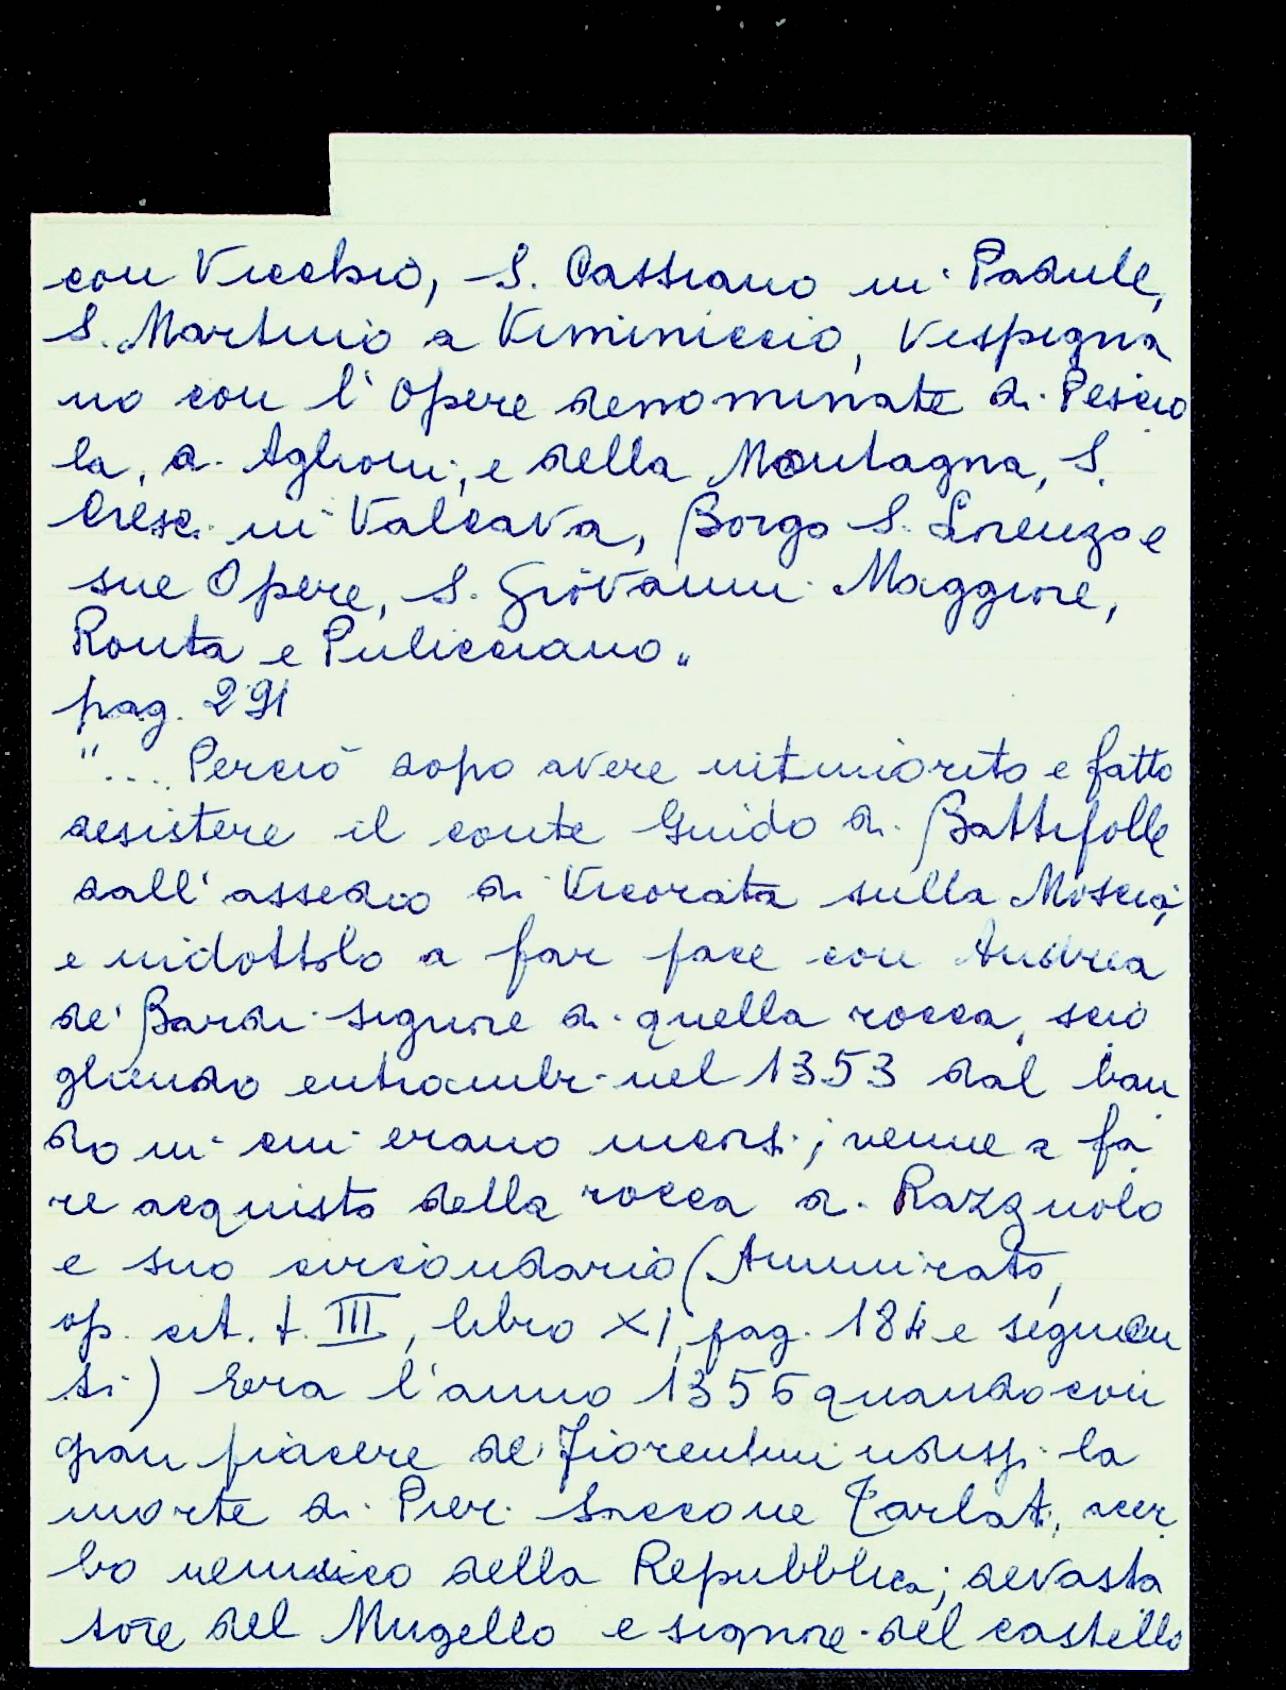 con Vicchio, S. Cassiano in Padule,
S. Martino a Viminiccio, Vespigna
no con l'Opere denominate di Pescio
la, di Aglioni, e della Montagna, S.
Cresci in Valcava, Borgo S. Lorenzo e
sue Opere, S. Giovanni Maggiore,
Ronta e Pulicciano„
pag. 291
"... Perciò dopo avere intimorito e fatto
desistere il conte Guido di Battifolle
dall'assedio di Vicorata sulla Moscia,
e ridottolo a far pace con Andrea
de' Bardi signore di quella rocca, scio
gliendo entrambi nel 1353 dal ban
do in cui erano incorsi; venne a fa
re acquisto della rocca di Razzuolo
e suo circondario (Ammirato,
op. cit. t. III, libro XI, pag. 184 e seguen
ti) Era l'anno 1356 quando con
gran piacere de' Fiorentini udissi la
morte di Pier Saccone Tarlati, acer
bo nemico della Repubblica; devasta
tore del Mugello e signore del castello